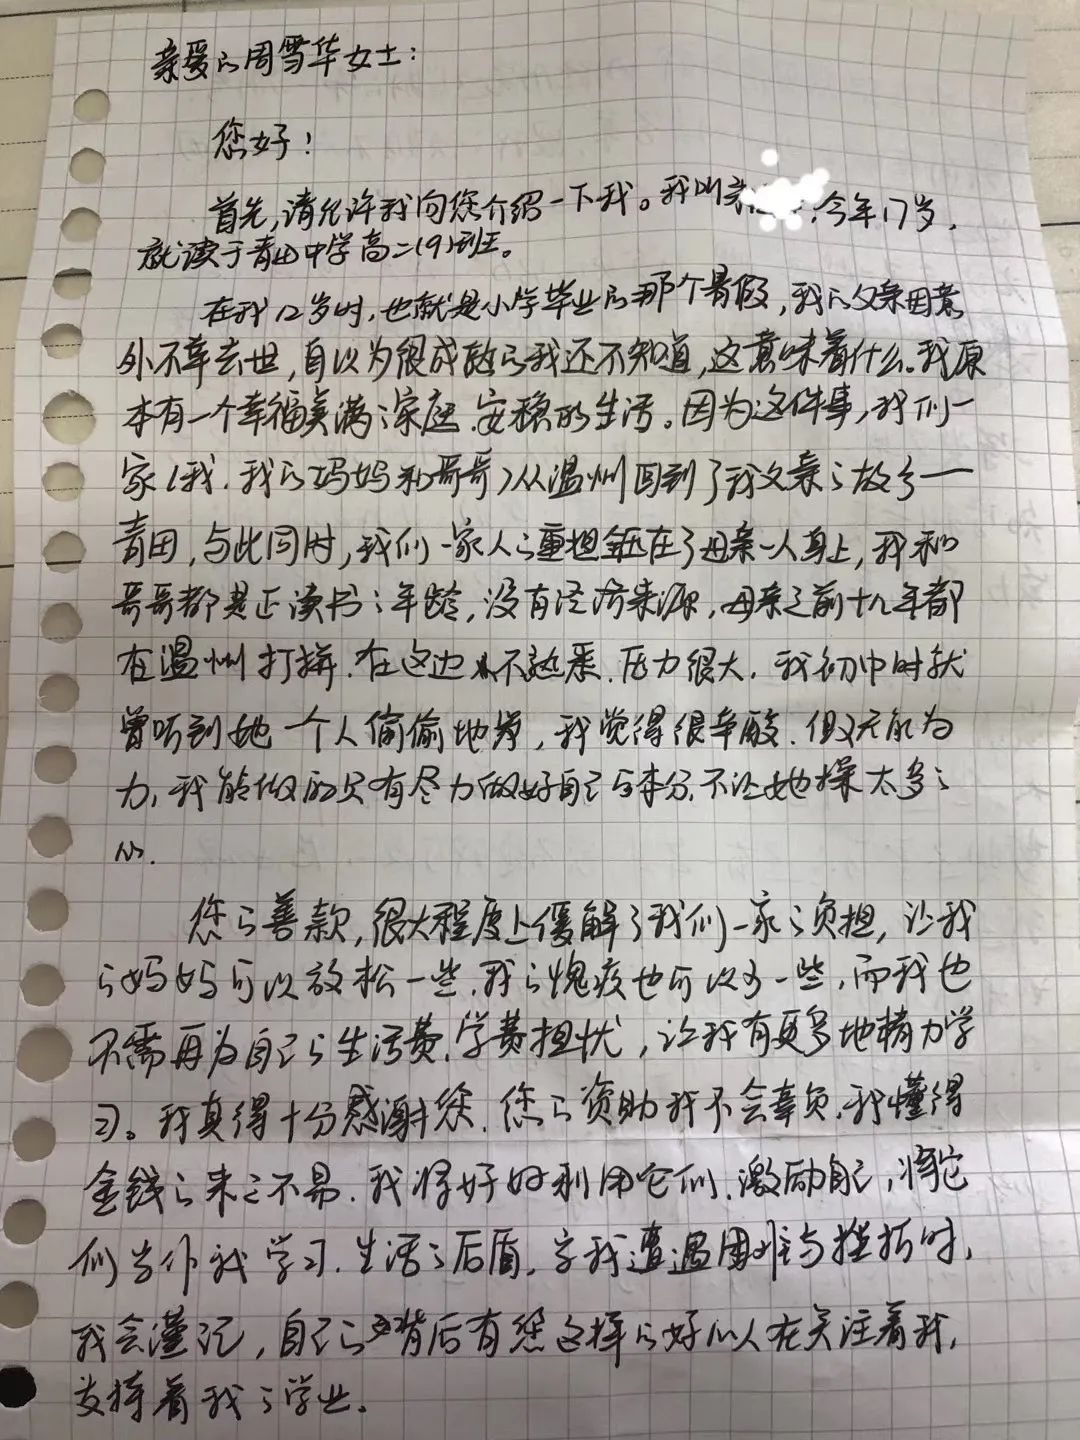 亲爱的周雪华女士：
您好！
首先,请允许我向您介绍一下我。我叫 ,今年17岁,
就读于青田中学高二(9)班。
在我12岁时,也就是小学毕业的那个暑假,我的父亲因意
外不幸去世,自以为很成熟的我还不知道,这意味着什么。我原
本有一个幸福美满的家庭、安稳的生活。因为这件事,我们一
家(我、我的妈妈和哥哥)从温州回到了我父亲的故乡——
青田,与此同时,我们一家人的重担全压在了母亲一人身上,我和
哥哥都是正读书的年龄,没有经济来源,母亲之前十几年都
在温州打拼,在这边 不熟悉,压力很大,我初中时就
曾听到她一个人偷偷地哭,我觉得很辛酸,但又无能为
力,我能做的只有尽力做好自己的本分,不让她操太多的
心.
您的善款,很大程度上缓解了我们一家的负担,让我
的妈妈可以放松一些,我的愧疚也可以少一些,而我也
不需再为自己的生活费、学费担忧,让我有更多地精力学
习。我真得十分感谢您,您的资助我不会辜负,我懂得
金钱的来之不易,我将好好利用它们,激励自己,将它
们当作我学习、生活的后盾,当我遭遇困难与挫折时,
我会谨记,自己的背后有您这样的好心人在关注着我,
支持着我的学业。